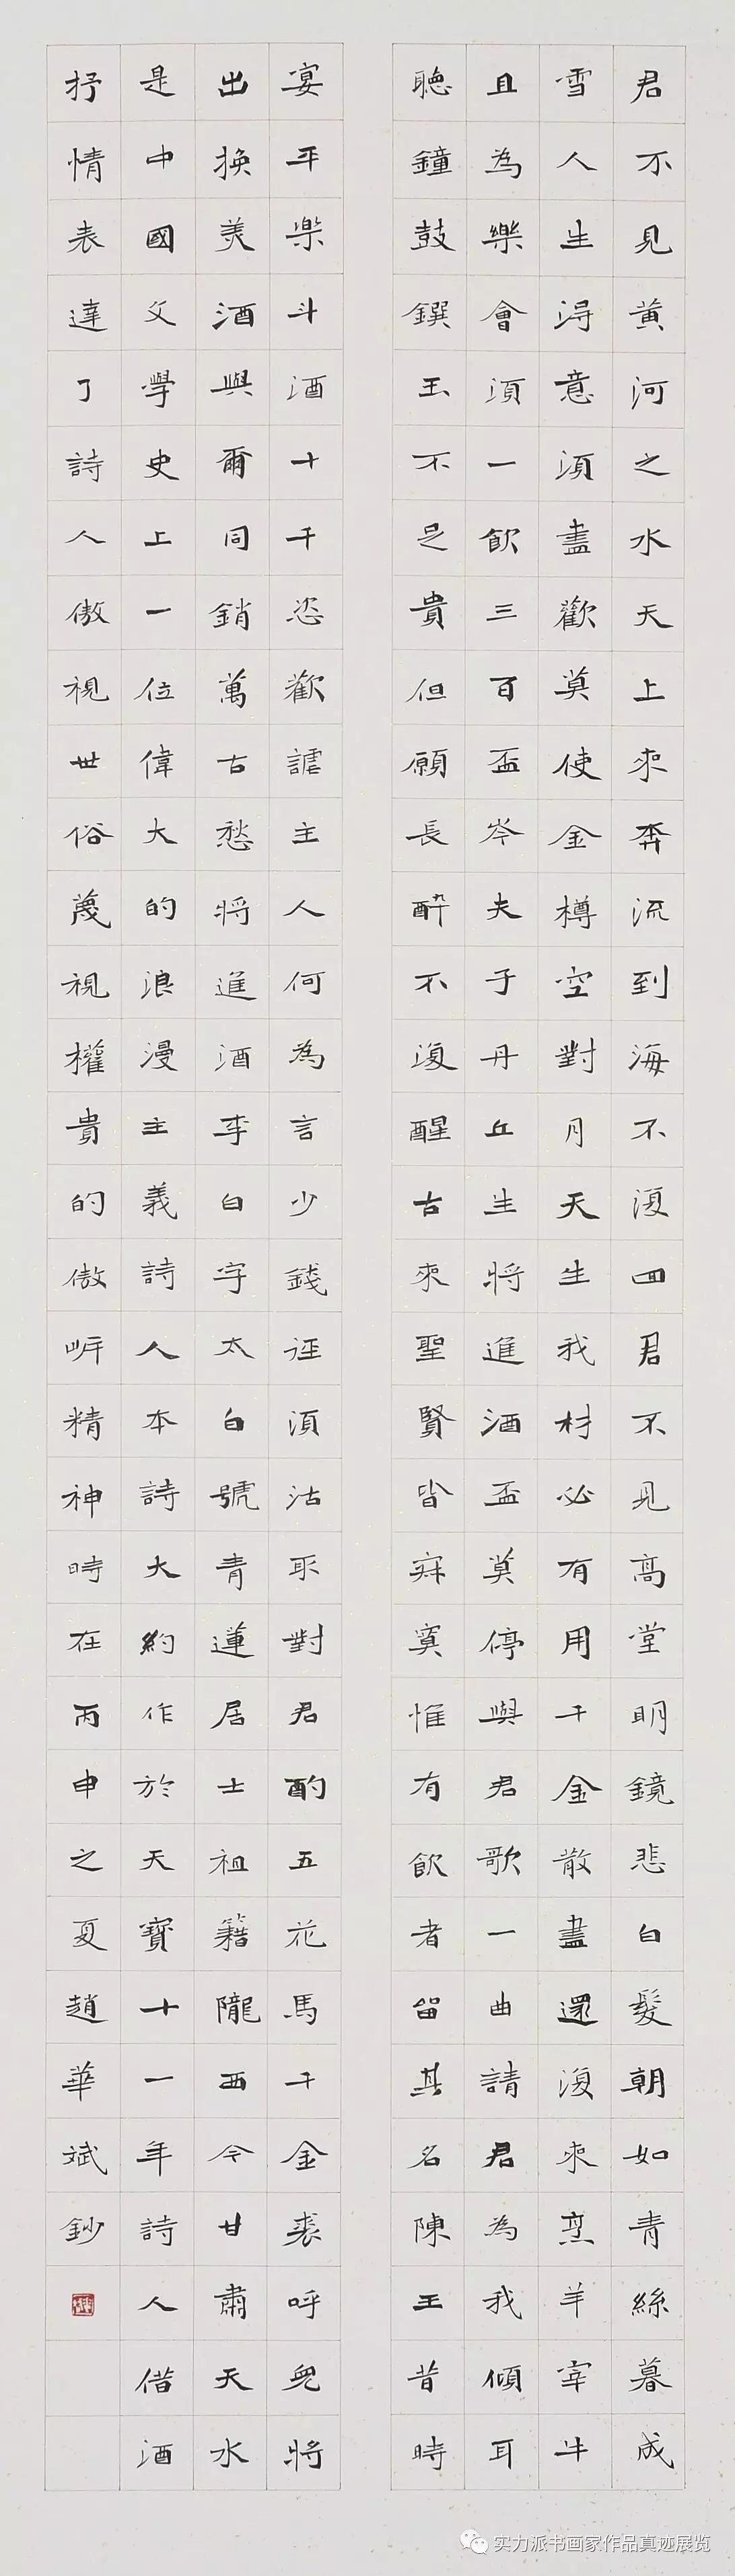 君不見黃河之水天上來奔流到海不復回君不見高堂明鏡悲白髮朝如青絲暮成
雪人生得意須盡歡莫使金樽空對月天生我材必有用千金散盡還復來烹羊宰牛
且為樂會須一飲三百盃岑夫子丹丘生將進酒盃莫停與君歌一曲請君為我傾耳
聽鐘鼓饌玉不足貴但願長醉不復醒古來聖賢皆寂寞惟有飲者留其名陳王昔時
宴平樂斗酒十千恣歡謔主人何為言少錢徑須沽取對君酌五花馬千金裘呼兒將
出換美酒與爾同銷萬古愁將進酒李白字太白號青蓮居士祖籍隴西今甘肅天水
是中國文學史上一位偉大的浪漫主義詩人本詩大約作於天寶十一年詩人借酒
抒情表達了詩人傲視世俗蔑視權貴的傲岸精神時在丙申之夏趙華斌鈔
实力派书画家作品真迹展览